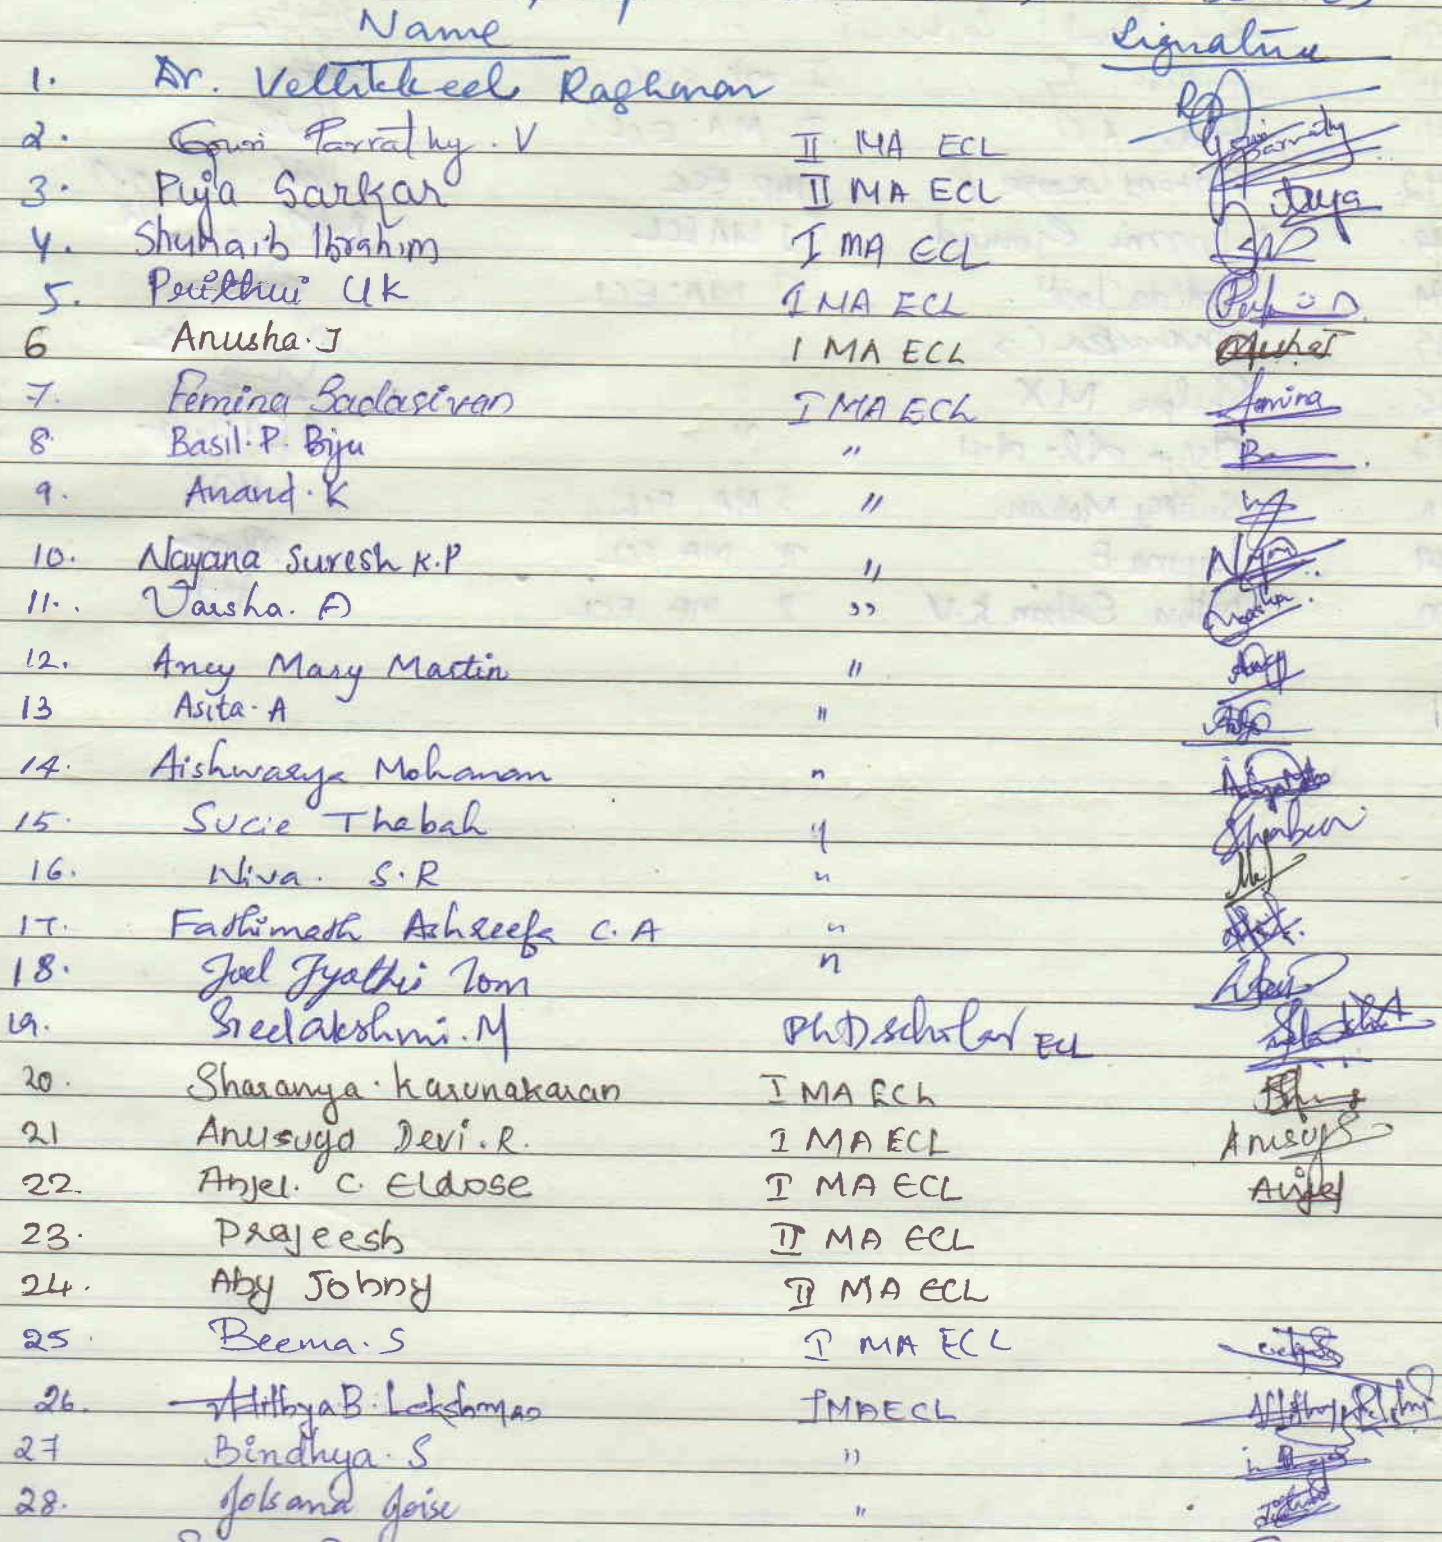 Name Signature
1. Dr. Vellikkeel Raghavan
2. Gouri Parvathy . V II MA ECL
3. Puja Sarkar II MA ECL Puja
4. Shuhaib Ibrahim I MA ECL
5. Prithvi UK I MA ECL
6 Anusha . J I MA ECL
7. Femina Sadasivan I MA ECL
8 Basil . P. Biju "
9. Anand . K "
10. Nayana Suresh K.P "
11. Varsha. A "
12. Ancy Mary Martin "
13 Asita . A "
14. Aishwarya Mohanan "
15. Sucie Thabah "
16. Niva. S.R "
17. Fathimath Ashreefa C. A "
18. Joel Jyothis Tom "
19. Sreelakshmi . M PhD scholar ECL
20. Sharanya . Karunakaran I MA ECL
21 Anusuya Devi . R. I MA ECL Anusuya
22. Anjel. C. Eldose I MA ECL Anjel
23. Prajeesh II MA ECL
24. Aby Johny II MA ECL
25. Beema . S I MA ECL
26. Adithya B. Lakshman I MA ECL
27 Bindhya . S "
28. Jolsana Joise "